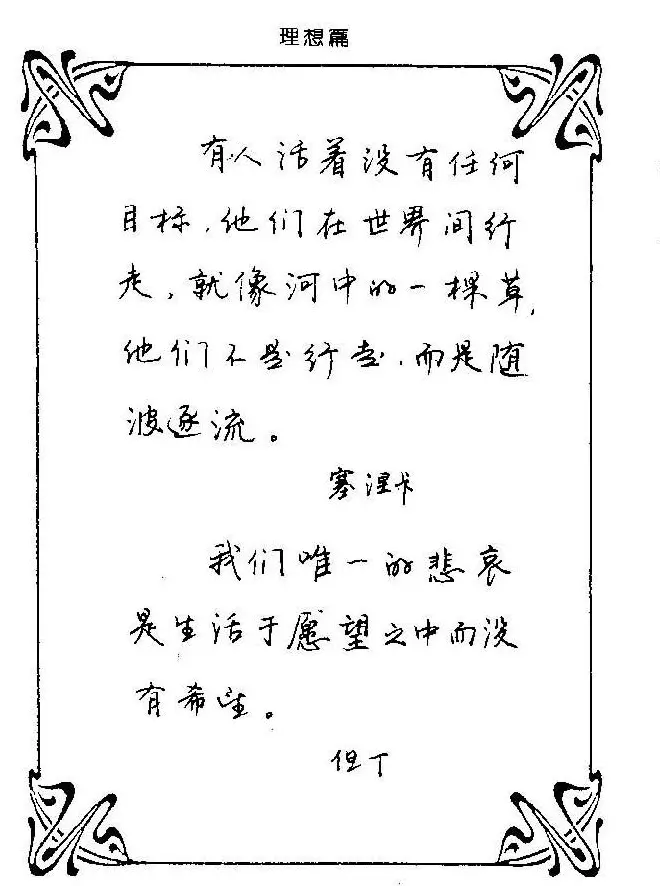 理想篇
有人活着没有任何
目标，他们在世界间行
走，就像河中的一棵草，
他们不是行走，而是随
波逐流。
塞涅卡
我们唯一的悲哀
是生活于愿望之中而没
有希望。
但丁